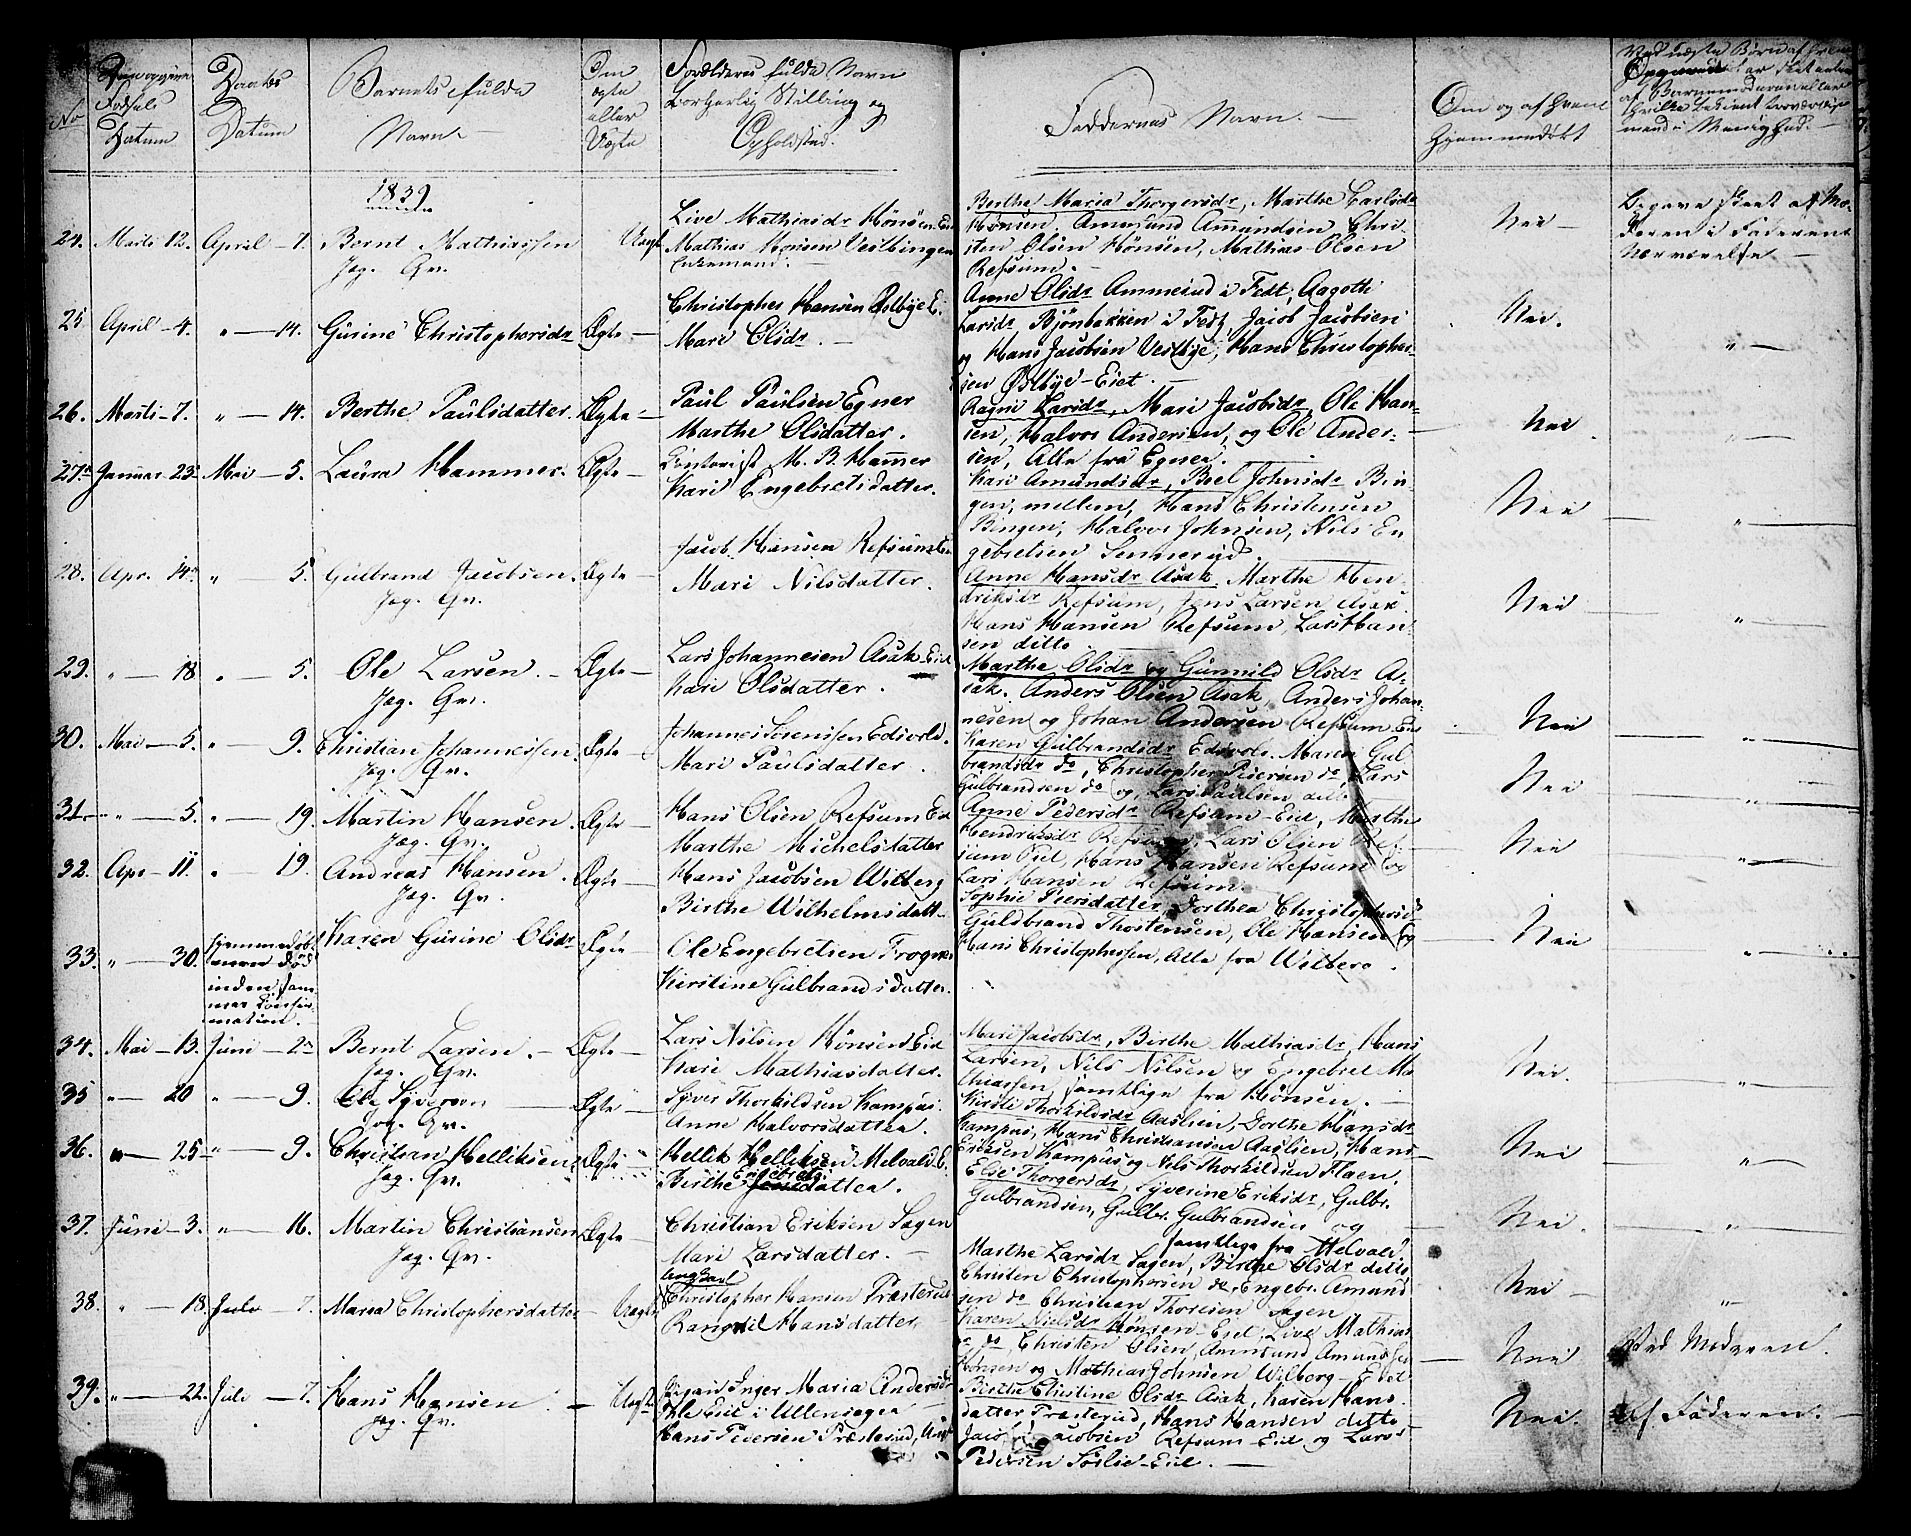 No
Fødsels
Datum
Daabs
Datum
Barnets fulda
Navn. —
Om
ægte
eller
Uægte
Forældrenes fulda Navn
borgerlig Stilling og
Opholdsted.
Faddernes Navn. —
Om og af hvem
hjemmedøbt
1839
24. Marts 12. April — 7. Bernt Mathiassen Uægt
Jag. Qv.
Live Mathiasdr Hønsen Eid
Mathias Hansen Vestbingen
Enkemand. —
Berthe Maria Thorgersdr, Marthe Carlsdr
Hønsen, Ammund Amundsen, Chri-
sten Olsen Hønsen, Mathias Olsen
Refsum. —
Nei —
Opgave skeet af Mo-
deren i Faderens
Nærværelse —
25 April — 4. " — 14. Gurine Christophersdr Ægte —
Christopher Hansen Østbye E.
Mari Olsdr. —
Anne Olsdr Ammerud i Fedt, Aagothe
Larsdr, Bjønbakken i Fedt, Jacob Jacobsen
og Hans Jacobsen Vestbye, Hans Christopher-
sen Østbye-Eiet. —
Nei.
" —
26. Marts — 7. " — 14. Berthe Paulsdatter. Ægte —
Paul Paulsen Egner
Marthe Olsdatter.
Ragni Larsdr, Mari Jacobsdr, Ole Han-
sen, Halvor Andersen, og Ole Ander-
sen, Alle fra Egner.
Nei
" —
27. Januar 23 Mai — 5. Laura Hammer. Ægte —
Contorist M. B. Hammer
Kari Engebretsdatter.
Kari Amundsdr, Boel Johnsdr Bin-
gen, mellem, Hans Christensen
Bingen, Halvor Johnsen, Nils En-
gebretsen Sennerud.
Nei
" —
28. Apr. 14 " — 5. Gulbrand Jacobsen. Ægte —
Jag. Qv.
Jacob Hansen Refsum
Mari Nilsdatter.
Anne Hansdr Asak, Marthe Hen-
driksdr Refsum, Jens Larsen Asak
Hans Hansen Refsum, Lars Han-
sen ditto
Nei —
" —
29. " — 18 " — 5. Ole Larsen. — Ægte —
Jag. Qv.
Lars Johannesen Asak-Eid
Kari Olsdatter.
Marthe Olsdr og Gunnild Olsdr A-
sak. Anders Olsen Asak, Anders Johan-
nesen og Johan Andersen Refsum Eie
Nei
" —
30. Mai — 5. " — 9. Christian Johannessen. Ægte —
Jag. Qv.
Johannes Sørensen Edsvold.
Mari Paulsdatter.
Karen Gulbrandsdr Edsvold. Maren Gul
brandsdr do, Christopher Pedersen do, Lars
Gulbrandsen do og Lars Paulsen ditto
Nei
" —
31. " — 5. " — 19. Martin Hansen. Ægte —
Jag. Qv.
Hans Olsen Refsum Eid
Marthe Michelsdatter
Anne Pedersdr Refsum-Eid, Marthe
Hendriksdr Refsum, Lars Olsen Ref-
sum Eiet, Hans Hansen Refsum og
Lars Hansen Refsum.
Nei
" —
32. Apr — 11. " — 19. Andreas Hansen. Ægte —
Jag. Qv.
Hans Jacobsen Wilberg
Birthe Wilhelmsdatt-
Sophie Peersdatter, Dorthea Christophersd
Guldbrand Thorstensen, Ole Hansen og
Hans Christophersen, Alle fra Wilberg.
Nei
" —
33. " — 30. hjemmedøbt
men død
inden
Confir-
mation.
Karen Gurine Olsdr Ægte
Ole Engebretsen Frogner
Kirstine Gulbrandsdatter.
34. Mai — 13. Juni — 2 Bernt Larsen. — Ægte —
Jag. Qv.
Lars Nilsen Hønsen Eid
Kari Mathiasdatter.
Mari Jacobsdr, Birthe Mathiasdr, Hans
Larsen, Nils Nilsen og Engebret Ma
thiassen, samtlige fra Hønsen. —
Nei.
" —
35 " — 20 " — 9. Ole Syversen Ægte
Jag. Qv.
Syver Thorkildsen Kampus.
Anne Halvorsdatter.
Kirsti Thorkildsdr Aaslien, Dorthe Hansdr
Kampus, Hans Christiansen Aaslien, Hans
Eriksen Kampus og Nils Thorkildsen Flaen.
Nei
" —
36. " — 25 " — 9. Christian Helliksen Ægte
Jag. Qv.
Hellik Helliksen Melvold E.
Engebrets
Birthe datter.
Else Thorgersdr, Syverine Eriksdr, Gulbr.
Gulbrandsen, Gulbr. Gulbrandsen og
samtlige fra Melvold.
Nei.
" —
37. Juni — 3. " — 16. Martin Christiansen Ægte —
Jag. Qv.
Christian Eriksen Sagen
Mari Larsdatter. —
Marthe Larsdr Sagen, Birthe Olsdr ditto
Christen Christophersen do, Engebr. Amund
sen do Christian Thoresen Sagen
Nei —
"
38. " — 18. Juli — 7. Maria Christophersdatter — Uægte
Ungkarl
Christopher Hansen Præsterud
Rangnil Hansdatter
Karen Nielsdr Hønsen-Eiet, Live Mathias
dr do, Christen Olsen, Ammund Amundsen
Hønsen og Mathias Johnsen Wilberg-Eiet
Nei
Ved Moderen.
39. " — 22. Juli — 7. Hans Hansen. — Uægte
Jag. Qv.
Pigen Inger Maria Andersdr
Eiet i Ullensager —
Hans Pedersen Præsterud,
Birthe Christine Olsdr Asak, Karen Hans
datter Præsterud, Hans Hansen ditto
Jacob Jacobsen Refsum-Eiet og Lars
Pedersen Sørlie-Eiet. —
Nei.
Af Faderen. —